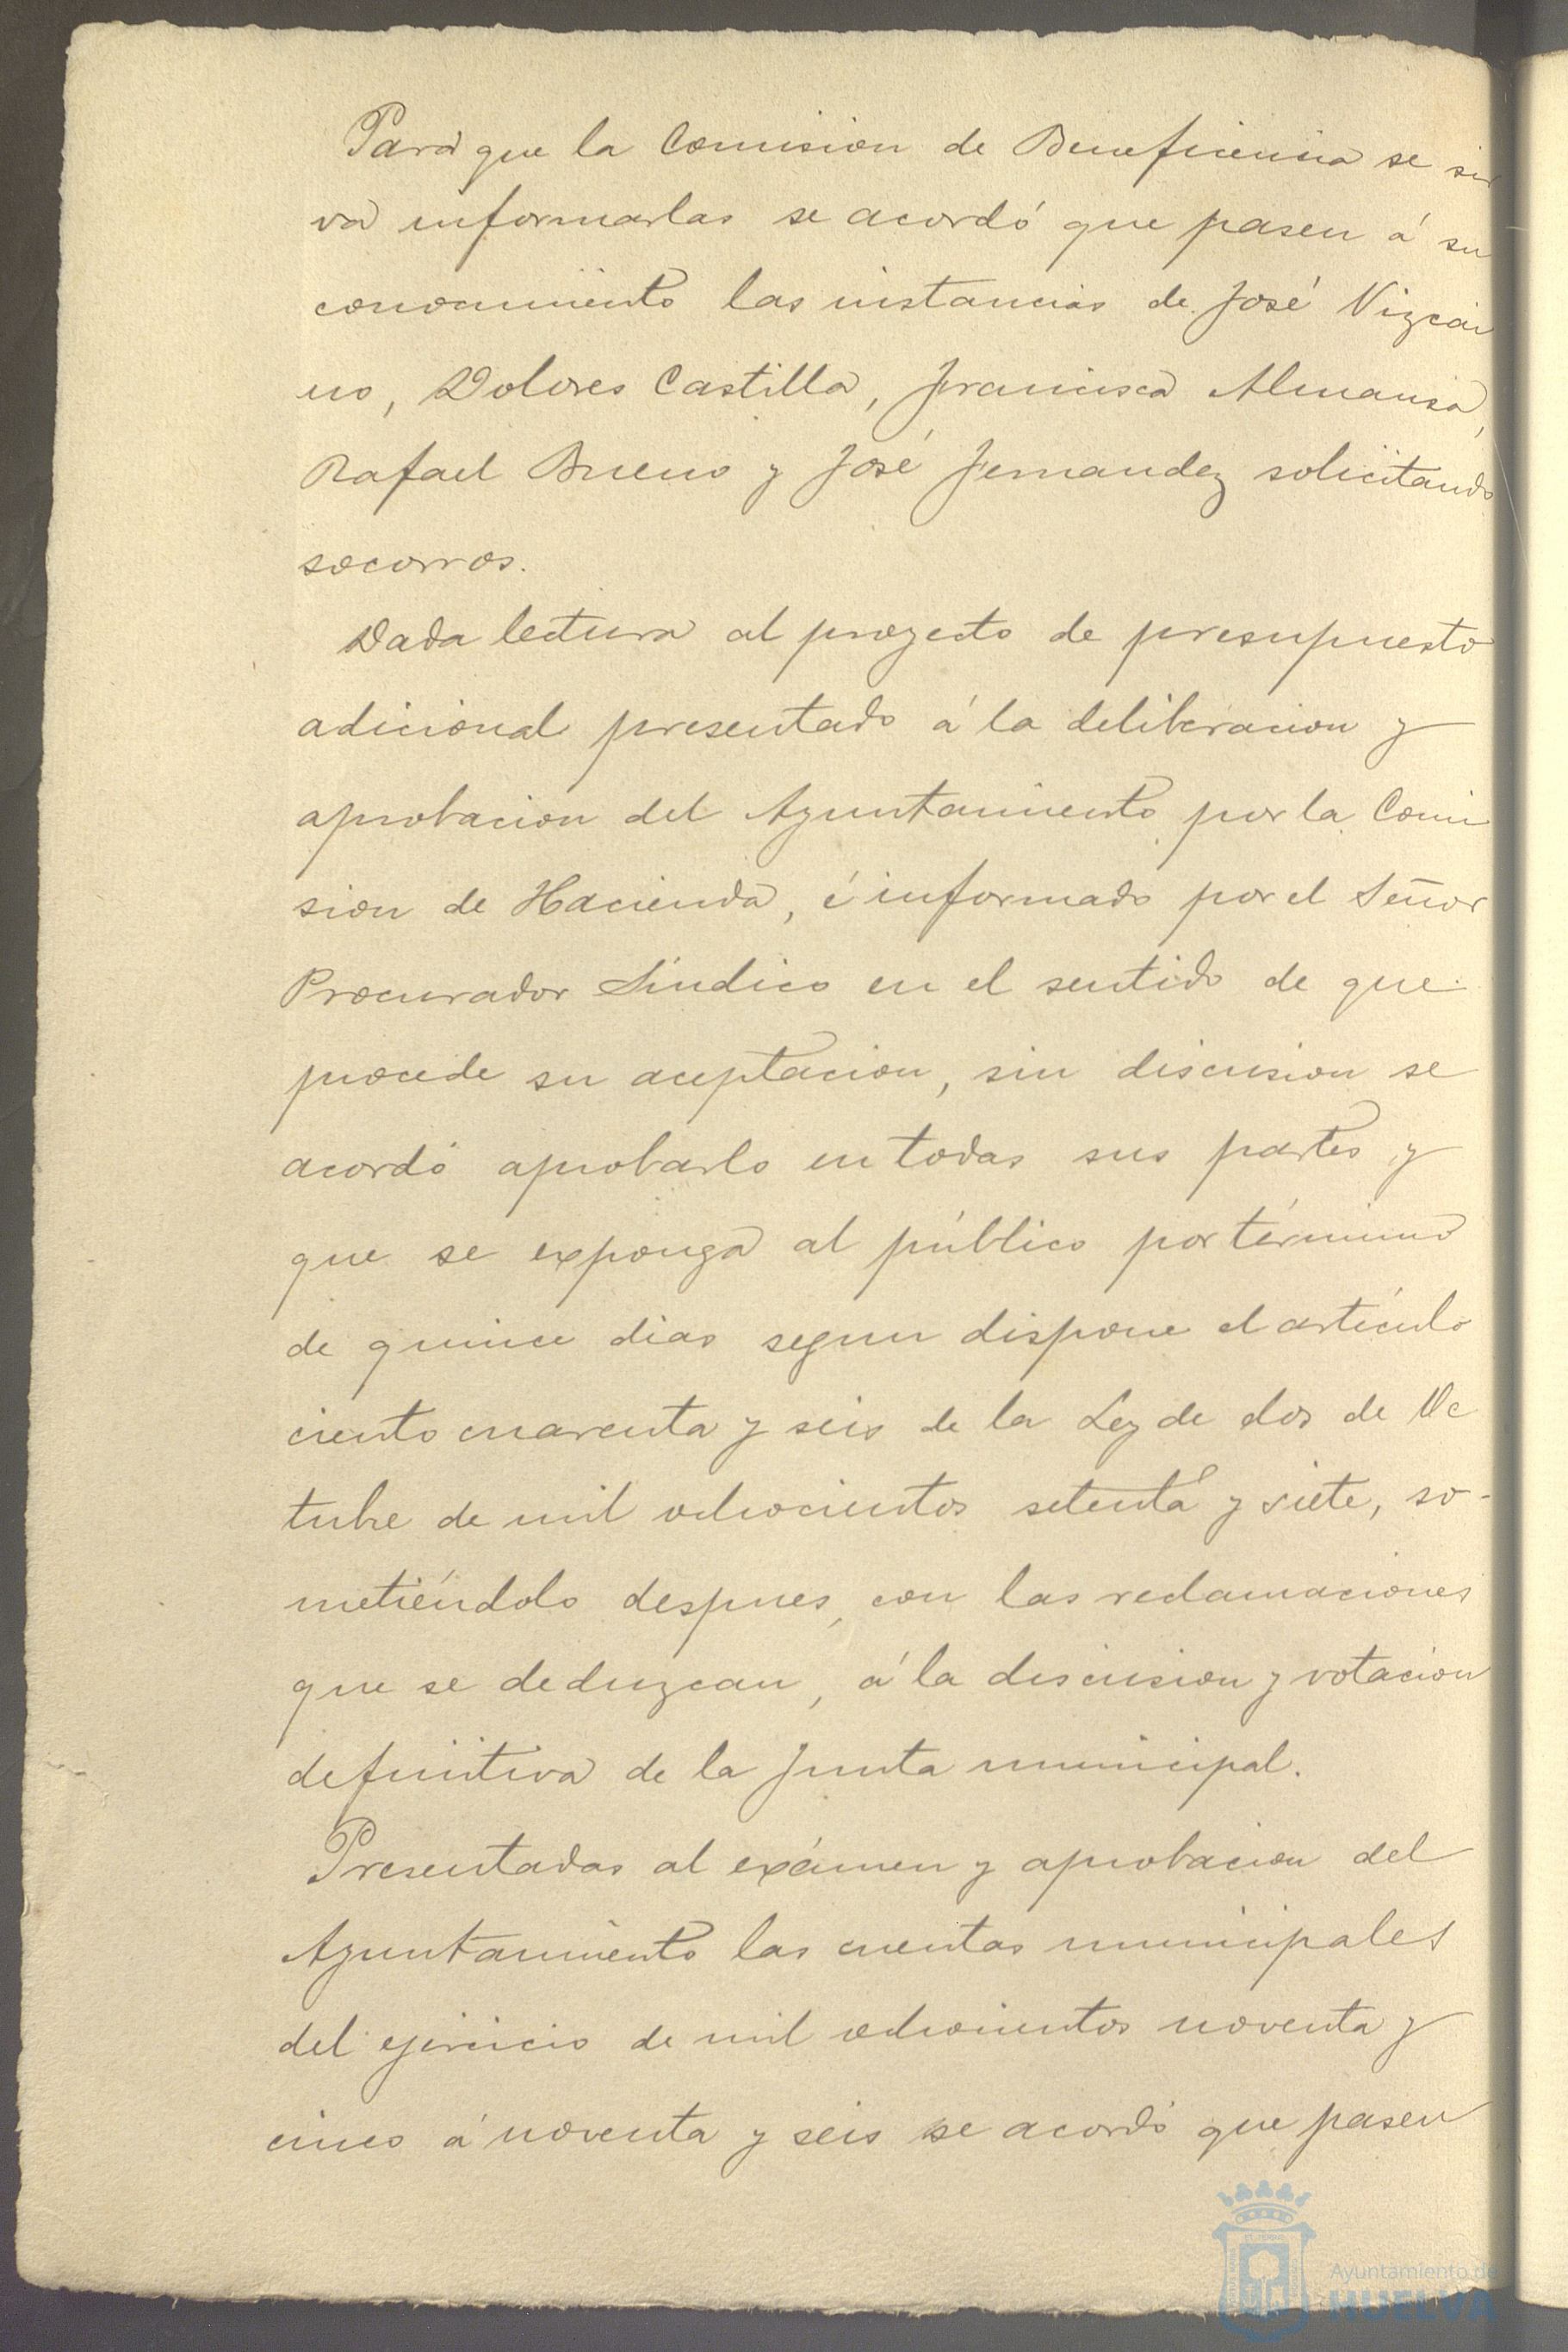 Para que la Comision de Beneficencia se sir
va informarlas se acordó que pasen á su
conocimiento las instancias de José Vizcai
no, Dolores Castilla, Francisca Almansa,
Rafael Bueno y José Fernandez solicitando
socorros.
Dada lectura al proyecto de presupuesto
adicional presentado á la deliberacion y
aprobacion del Ayuntamiento por la Comi
sion de Hacienda, é informado por el Señor
Procurador Síndico en el sentido de que
procede su aceptacion, sin discusion se
acordó aprobarlo en todas sus partes y
que se exponga al público por término
de quince dias segun dispone el artículo
ciento cuarenta y seis de la Ley de dos de Oc
tubre de mil ochocientos setenta y siete, so-
metiéndolo despues, con las reclamaciones
que se deduzcan, á la discusion y votacion
definitiva de la Junta municipal.
Presentadas al exámen y aprobacion del
Ayuntamiento las cuentas municipales
del ejercicio de mil ochocientos noventa y
cinco á noventa y seis se acordó que pasen
Ayuntamiento de
HUELVA